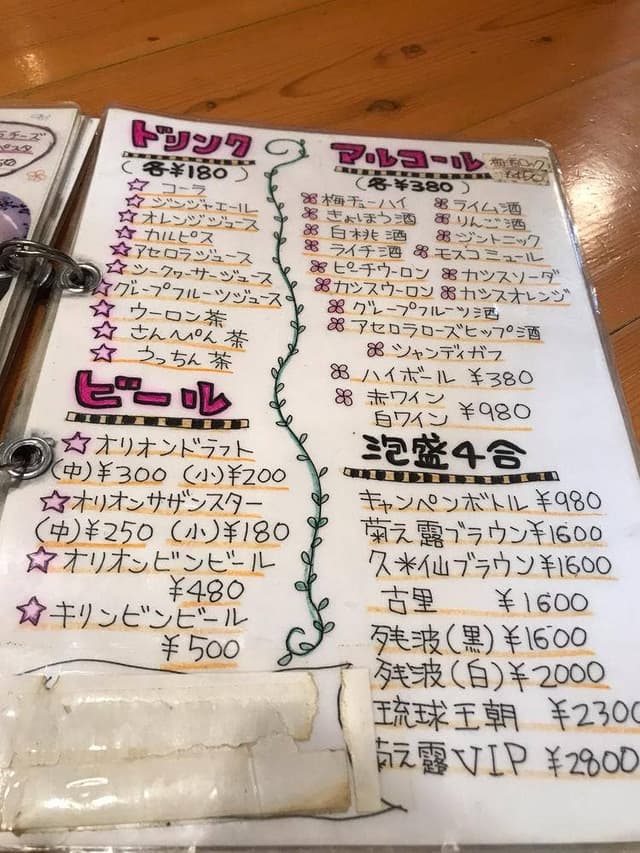 ドリンク
(各¥180)
コーラ
ジンジャエール
オレンジジュース
カルピス
アセロラジュース
シークヮーサージュース
グレープフルーツジュース
ウーロン茶
さんぺん茶
うっちん茶
ビール
オリオンドラフト
(中)¥300 (小)¥200
オリオンサザンスター
(中)¥250 (小)¥180
オリオンビンビール
¥480
キリンビンビール
¥500
アルコール
(各¥380)
梅チューハイ ライム酒
きょほう酒 りんご酒
白桃酒 ジントニック
ライチ酒 モスコミュール
ピーチウーロン カシスソーダ
カシスウーロン カシスオレンジ
グレープフルーツ酒
アセロラローズヒップ酒
シャンディガフ
ハイボール ¥380
赤ワイン
白ワイン ¥980
泡盛4合
キャンペンボトル ¥980
菊之露ブラウン ¥1600
久米仙ブラウン ¥1600
古里 ¥1600
残波(黒) ¥1600
残波(白) ¥2000
琉球王朝 ¥2300
菊之露VIP ¥2800